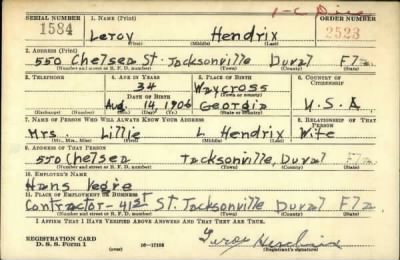 1-C Disc
SERIAL NUMBER 1. NAME (Print) ORDER NUMBER
1584 Leroy Hendrix 2523
(First) (Middle) (Last)
2. ADDRESS (Print)
550 Chelsea St. Jacksonville Duval Fla
(Number and street or R. F. D. number) (Town) (County) (State)
3. TELEPHONE 4. AGE IN YEARS 5. PLACE OF BIRTH 6. COUNTRY OF CITIZENSHIP
34 Waycross
DATE OF BIRTH (Town or county)
Aug. 14, 1906 Georgia U.S.A.
(Exchange) (Number) (Mo.) (Day) (Yr.) (State or country)
7. NAME OF PERSON WHO WILL ALWAYS KNOW YOUR ADDRESS 8. RELATIONSHIP OF THAT PERSON
Mrs. Lillie L Hendrix Wife
(Mr., Mrs., Miss) (First) (Middle) (Last)
9. ADDRESS OF THAT PERSON
550 Chelsea Jacksonville, Duval Fla
(Number and street or R. F. D. number) (Town) (County) (State)
10. EMPLOYER'S NAME
Hans
11. PLACE OF EMPLOYMENT OR BUSINESS
Contractor - 41st St. Jacksonville Duval Fla
(Number and street or R. F. D. number) (Town) (County) (State)
I AFFIRM THAT I HAVE VERIFIED ABOVE ANSWERS AND THAT THEY ARE TRUE.
REGISTRATION CARD
D. S. S. Form 1 16-17105 Leroy Hendrix
(Registrant's signature)